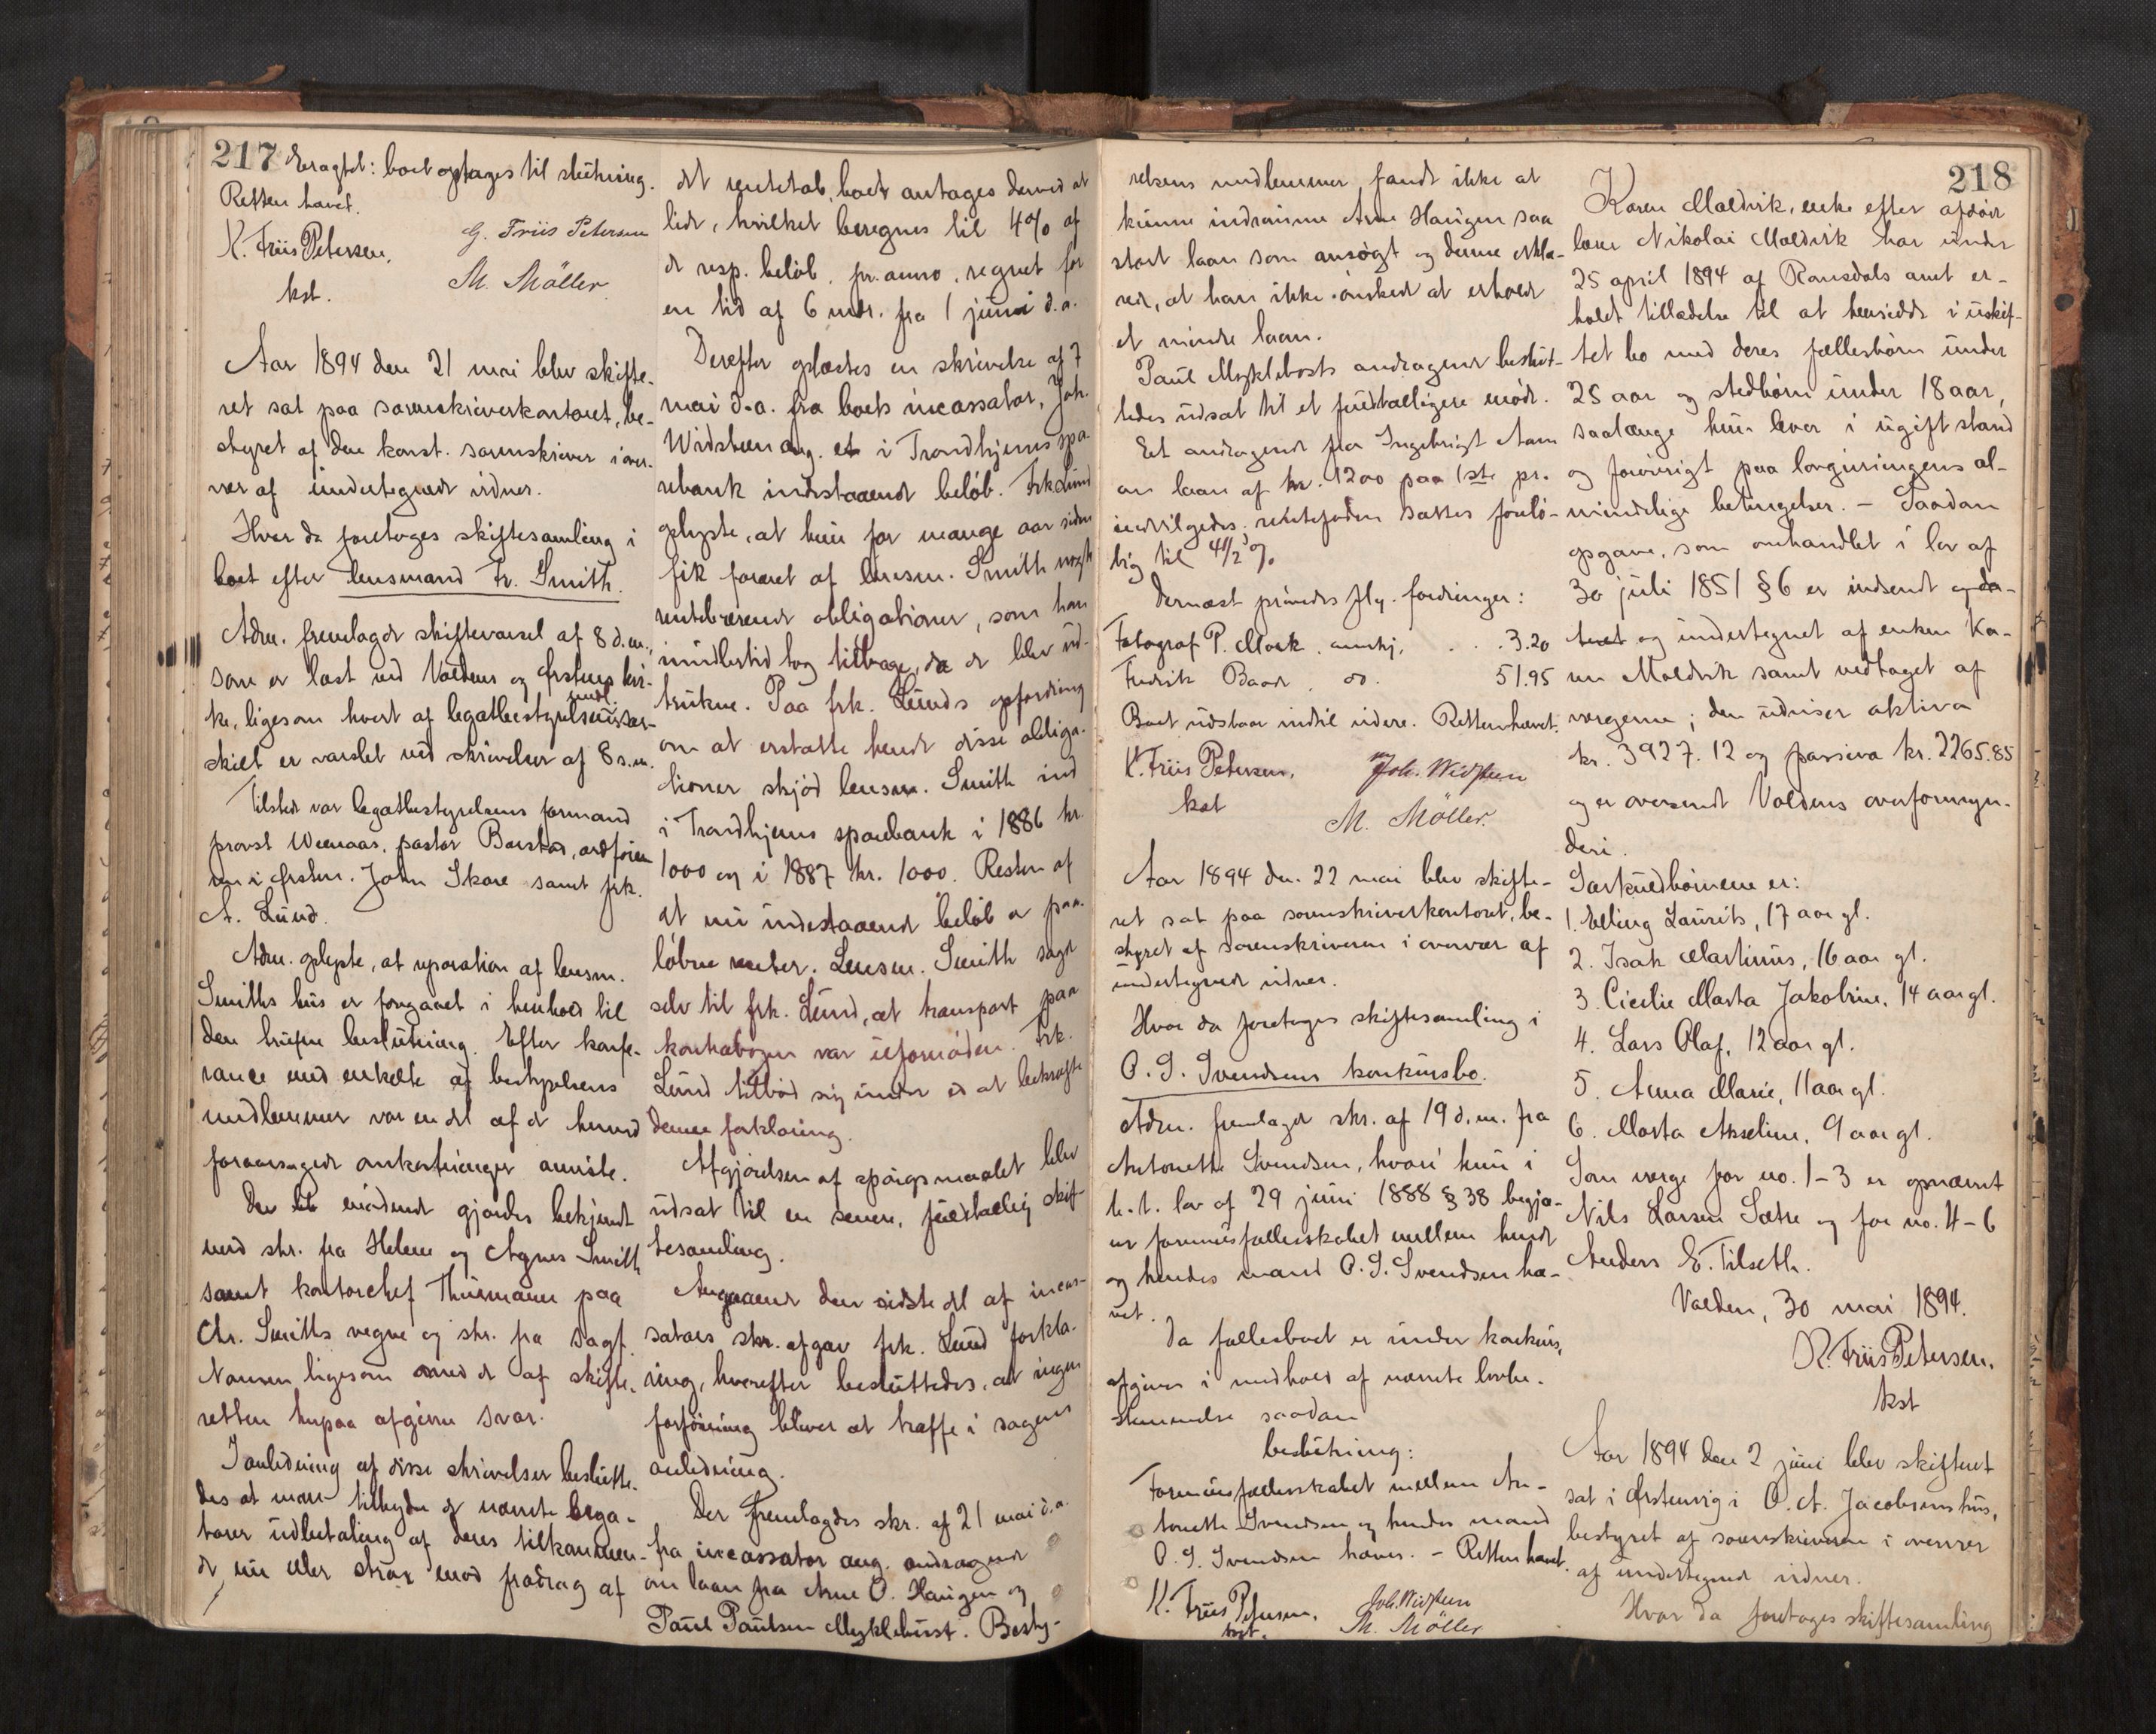 217
Eragtet: boet optages til slutning.
Retten hævet.
K. Friis Petersen, G. Friis Petersen
kst. M. Möller
Aar 1894 den 21 mai blev skifte-
ret sat paa sorenskriverkontoret, be-
styret af den konst. sorenskriver i over-
vær af undertegnede vidner.
Hvor da foretoges skiftesamling i
boet efter lensmand Fr. Smith.
Adm. fremlagde skiftevarsel af 8 d.m.,
som er læst ved Voldens og Ørstens kir-
ke, ligesom hvert af legatbestyrelsens medl. sær-
skilt er varslet ved skrivelser af 8 s.m.
Tilstede var legatbestyrelsens formand
provst Weenaas, pastor Barstad, ordføre-
ren i Ørsten. John Skare samt frk.
A. Lund.
Adm. oplyste, at reparation af lensm.
Smiths hus er foregaaet i henhold til
den trufne beslutning. Efter konfe-
rance med enkelte af bestyrelsens
medlemmer var en del af de herved
foraarsagede omkostninger anviste.
De mødende gjordes bekjendt
med skr. fra Helene og Agnes Smith
samt kontorchef Thürmann paa
Chr. Smiths vegne og skr. fra sagf.
Nannen ligesom med de af skifte-
retten herpaa afgivne svar.
I anledning af disse skrivelser beslutte-
des at man tilbyder de nævnte lega-
tarer udbetaling af deres tilkommen-
de nu eller strax mod fradrag af
det rentetab, boet antages derved at
lide, hvilket beregnes til 4% af
de resp. beløb, pr. anno, regnet for
en tid af 6 mdr. fra 1 juni d.a.
Derefter oplæstes en skrivelse af 7
mai d.a. fra boets incassator, Joh.
Widsteen ang. et i Trondhjems spa-
rebank indestaaende beløb. Frk Lund
oplyste, at hun for mange aar siden
fik foræret af lensm. Smith nogle
rentebærende obligationer, som han
imidlertid tog tilbage, da de blev ud-
trukne. Paa frk. Lunds opfordring
om at erstatte hende disse obliga-
tioner skjød lensm. Smith ind
i Trondhjems sparebank i 1886 kr.
1000 og i 1887 kr. 1000. Resten af
det nu indestaaende beløb er paa-
løbne renter. Lensm. Smith sagde
selv til frk. Lund, at transport paa
kontrabogen var ufornøden. Frk.
Lund tilbød sig under ed at bekræfte
denne forklaring.
Afgjørelsen af spørgsmaalet blev
udsat til en senere, fuldtallig skif-
tesamling.
Angaaende den sidste del af incas-
sators skr. afgav frk. Lund forkla-
ring, hvorefter besluttedes, at ingen
forføining bliver at træffe i sagens
anledning.
Der fremlagdes skr. af 21 mai d.a.
fra incassator ang. andragende
om laan fra Arne O. Haugen og
Paul Paulsen Myklebust. Besty-
218
relsens medlemmer fandt ikke at
kunne indrømme Arne Haugen saa
stort laan som ansøgt og denne erklæ-
rede, at han ikke ønskede at erholde
et mindre laan.
Paul Myklebosts andragende beslut-
tedes udsat til et fuldtalligere møde.
Et andragende fra Ingebrigt Aam
om laan af kr. 1200 paa 1ste pr.
indvilgedes; rentefoden sættes forelø-
big til 4 1/2 %
Dernæst prøvedes flg. fordringer:
Fotograf P. Mork, anerkj. . . 3.20
Fredrik Baade, do. 51.95
Boet udstaar indtil videre. Retten hævet.
K. Friis Petersen. Joh. Widsteen
kst M. Möller.
Aar 1894 den 22 mai blev skifte-
ret sat paa sorenskriverkontoret, be-
styret af sorenskriveren i overvær af
undertegnede vidner.
Hvor da foretoges skiftesamling i
O. S. Svendsens konkursbo.
Adm. fremlagde skr. af 19 d.m. fra
Antonette Svendsen, hvori hun i
h.t. lov af 29 juni 1888 § 38 begjæ-
rer formuesfællesskabet mellem hende
og hendes mand O. S. Svendsen hæ-
vet.
Da fællesboet er under konkurs,
afgives i medhold af nævnte lovbe-
stemmelse saadan
beslutning:
Formuesfællesskabet mellem An-
tonette Svendsen og hendes mand
O. S. Svendsen hæves. - Retten hævet.
K. Friis Petersen. Joh. Widsteen
kst. M. Möller
Karen Moldvik, enke efter afdøde
lærer Nikolai Moldvik har under
25 april 1894 af Romsdals amt er-
holdt tilladelse til at hensidde i uskif-
tet bo med deres fællesbørn under
25 aar og stedbørn under 18 aar,
saalænge hun lever i ugift stand
og forøvrigt paa lovgivningens al-
mindelige betingelser. - Saadan
opgave, som omhandlet i lov af
30 juli 1851 § 6 er indsendt og da-
teret og undertegnet af enken Ka-
ren Moldvik samt vedtaget af
vergerne; den udviser aktiva
kr. 3927.12 og passiva kr. 2265.85
og er oversendt Voldens overformyn-
deri.
Særkuldbørnene er:
1. Elling Laurits, 17 aar gl.
2. Isak Martinus, 16 aar gl.
3. Cicilie Marta Jakobine, 14 aar gl.
4. Lars Olaf, 12 aar gl.
5. Anna Marie, 11 aar gl.
6. Marta Akseline, 9 aar gl.
Som verge for no. 1-3 er opnævnt
Nils Larsen Sætre og for no. 4-6
Anders E. Tilseth.
Volden, 30 mai 1894.
K. Friis Petersen.
kst
Aar 1894 den 2 juni blev skifteret
sat i Ørstenvig i O. A. Jacobsens hus,
bestyret af sorenskriveren i overvær
af undertegnede vidner.
Hvor da foretoges skiftesamling